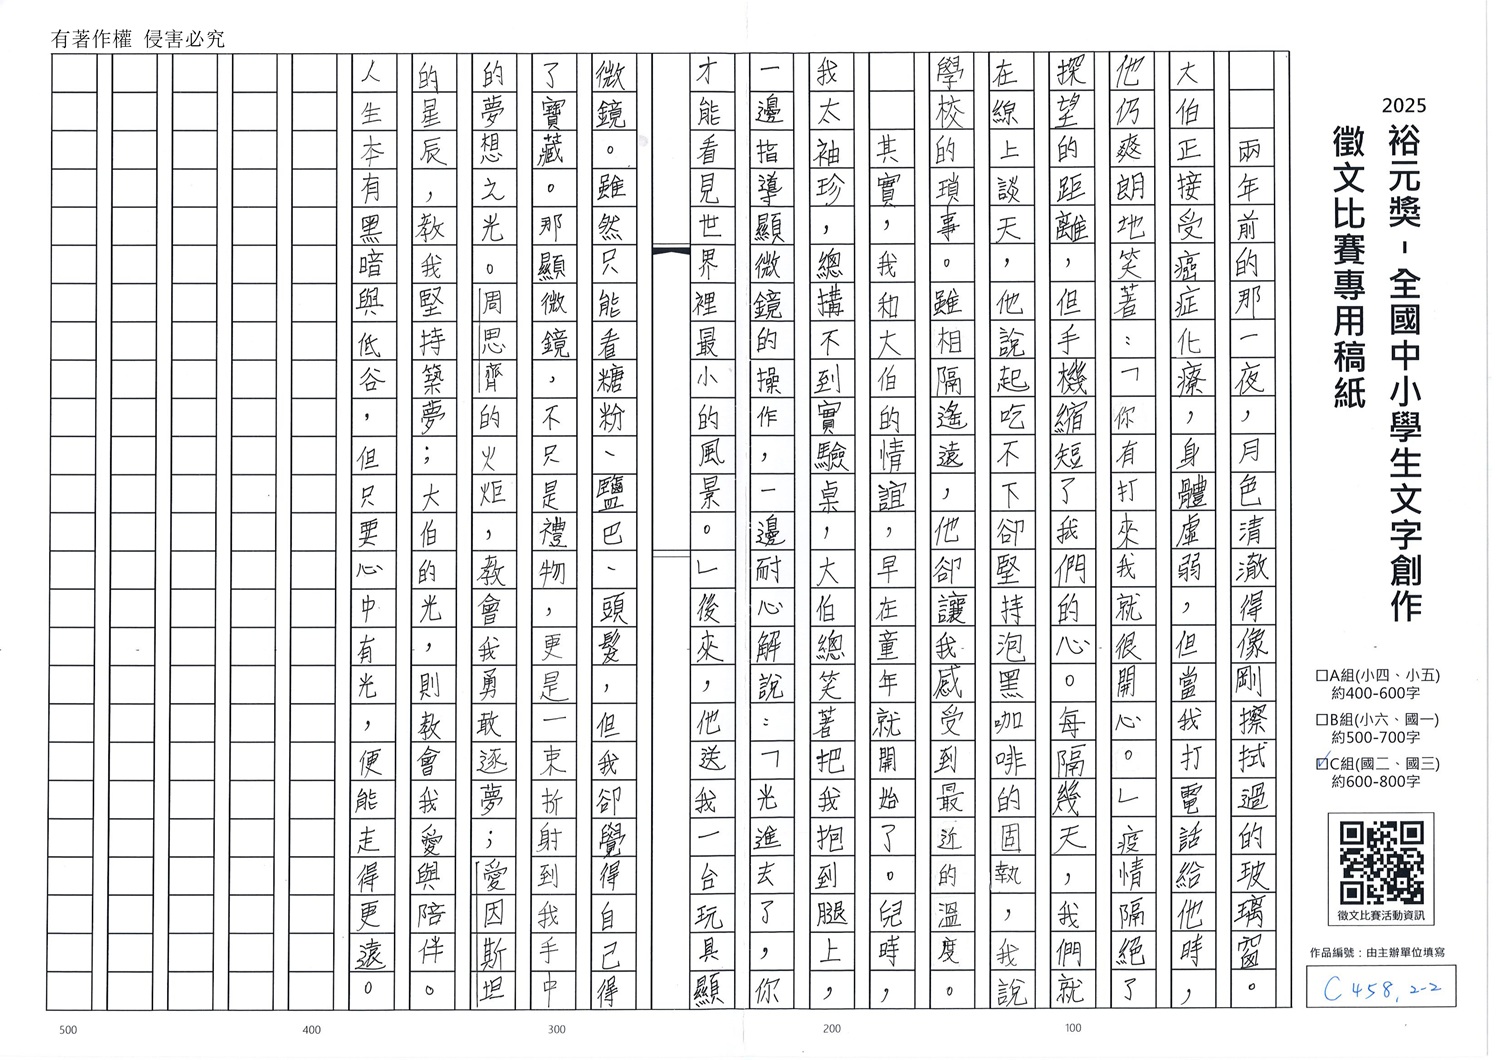 有著作權 侵害必究
2025
裕元獎-全國中小學生文字創作
徵文比賽專用稿紙
□A組(小四、小五)
約400-600字
□B組(小六、國一)
約500-700字
☑C組(國二、國三)
約600-800字
徵文比賽活動資訊
作品編號：由主辦單位填寫
C458, 2-2
兩年前的那一夜，月色清澈得像剛擦拭過的玻璃窗。
大伯正接受癌症化療，身體虛弱，但當我打電話給他時，
他仍爽朗地笑著：「你有打來我就很開心。」疫情隔絕了，
探望的距離，但手機縮短了我們的心。每隔幾天，我們就
在線上談天，他說起吃不下卻堅持泡黑咖啡的固執，我說
學校的瑣事。雖相隔遙遠，他卻讓我感受到最近的溫度。
其實，我和大伯的情誼，早在童年就開始了。兒時，
我太袖珍，總搆不到實驗桌，大伯總笑著把我抱到腿上，
一邊指導顯微鏡的操作，一邊耐心解說：「光進去了，你
才能看見世界裡最小的風景。」後來，他送我一台玩具顯
微鏡。雖然只能看糖粉、鹽巴、頭髮，但我卻覺得自己得
了寶藏。那顯微鏡，不只是禮物，更是一束折射到我手中
的夢想之光。周思齊的火炬，教會我勇敢逐夢；愛因斯坦
的星辰，教我堅持築夢；大伯的光，則教會我愛與陪伴。
人生本有黑暗與低谷，但只要心中有光，便能走得更遠。
500 400 300 200 100